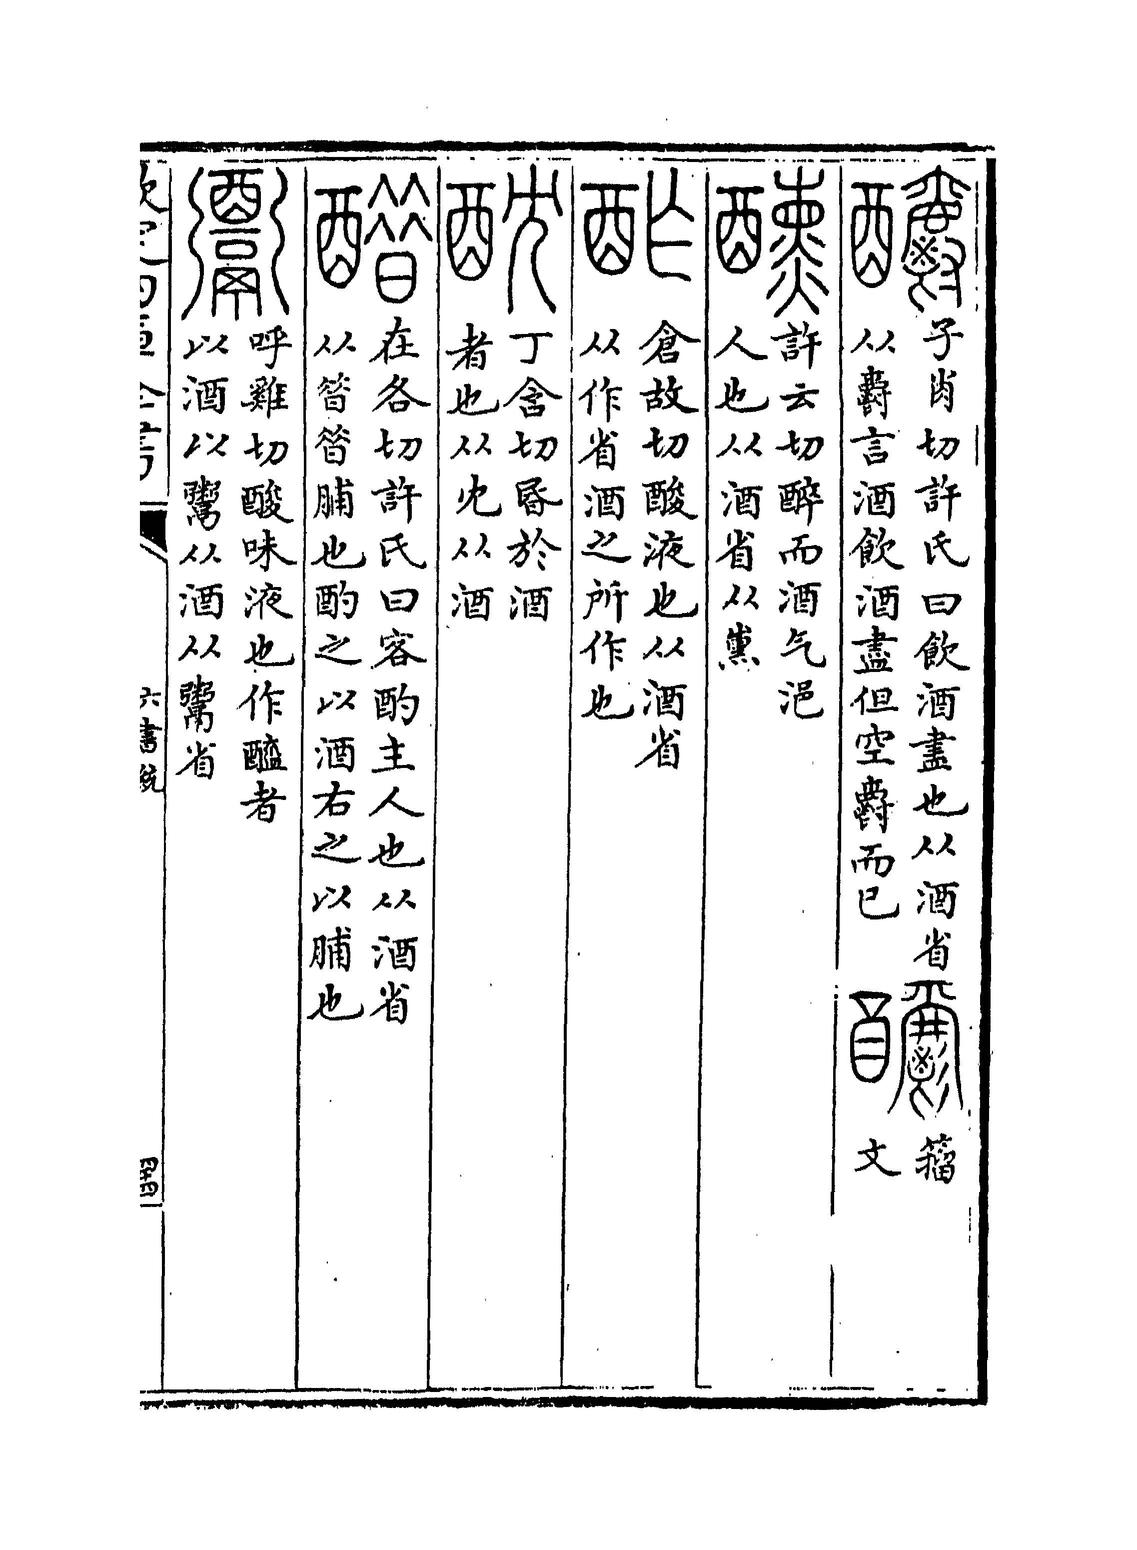 子肖切許氏曰飲酒盡也从酒省
从爵言酒飲酒盡但空爵而已
籀
文
許云切醉而酒气浥
人也从酒省从熏
倉故切酸液也从酒省
从作省酒之所作也
丁含切昏於酒
者也从冘从酒
在各切許氏曰客酌主人也从酒省
从䇎䇎脯也酌之以酒右之以脯也
呼雞切酸味液也作醯者
以酒以鬻从酒从鬻省
六書統